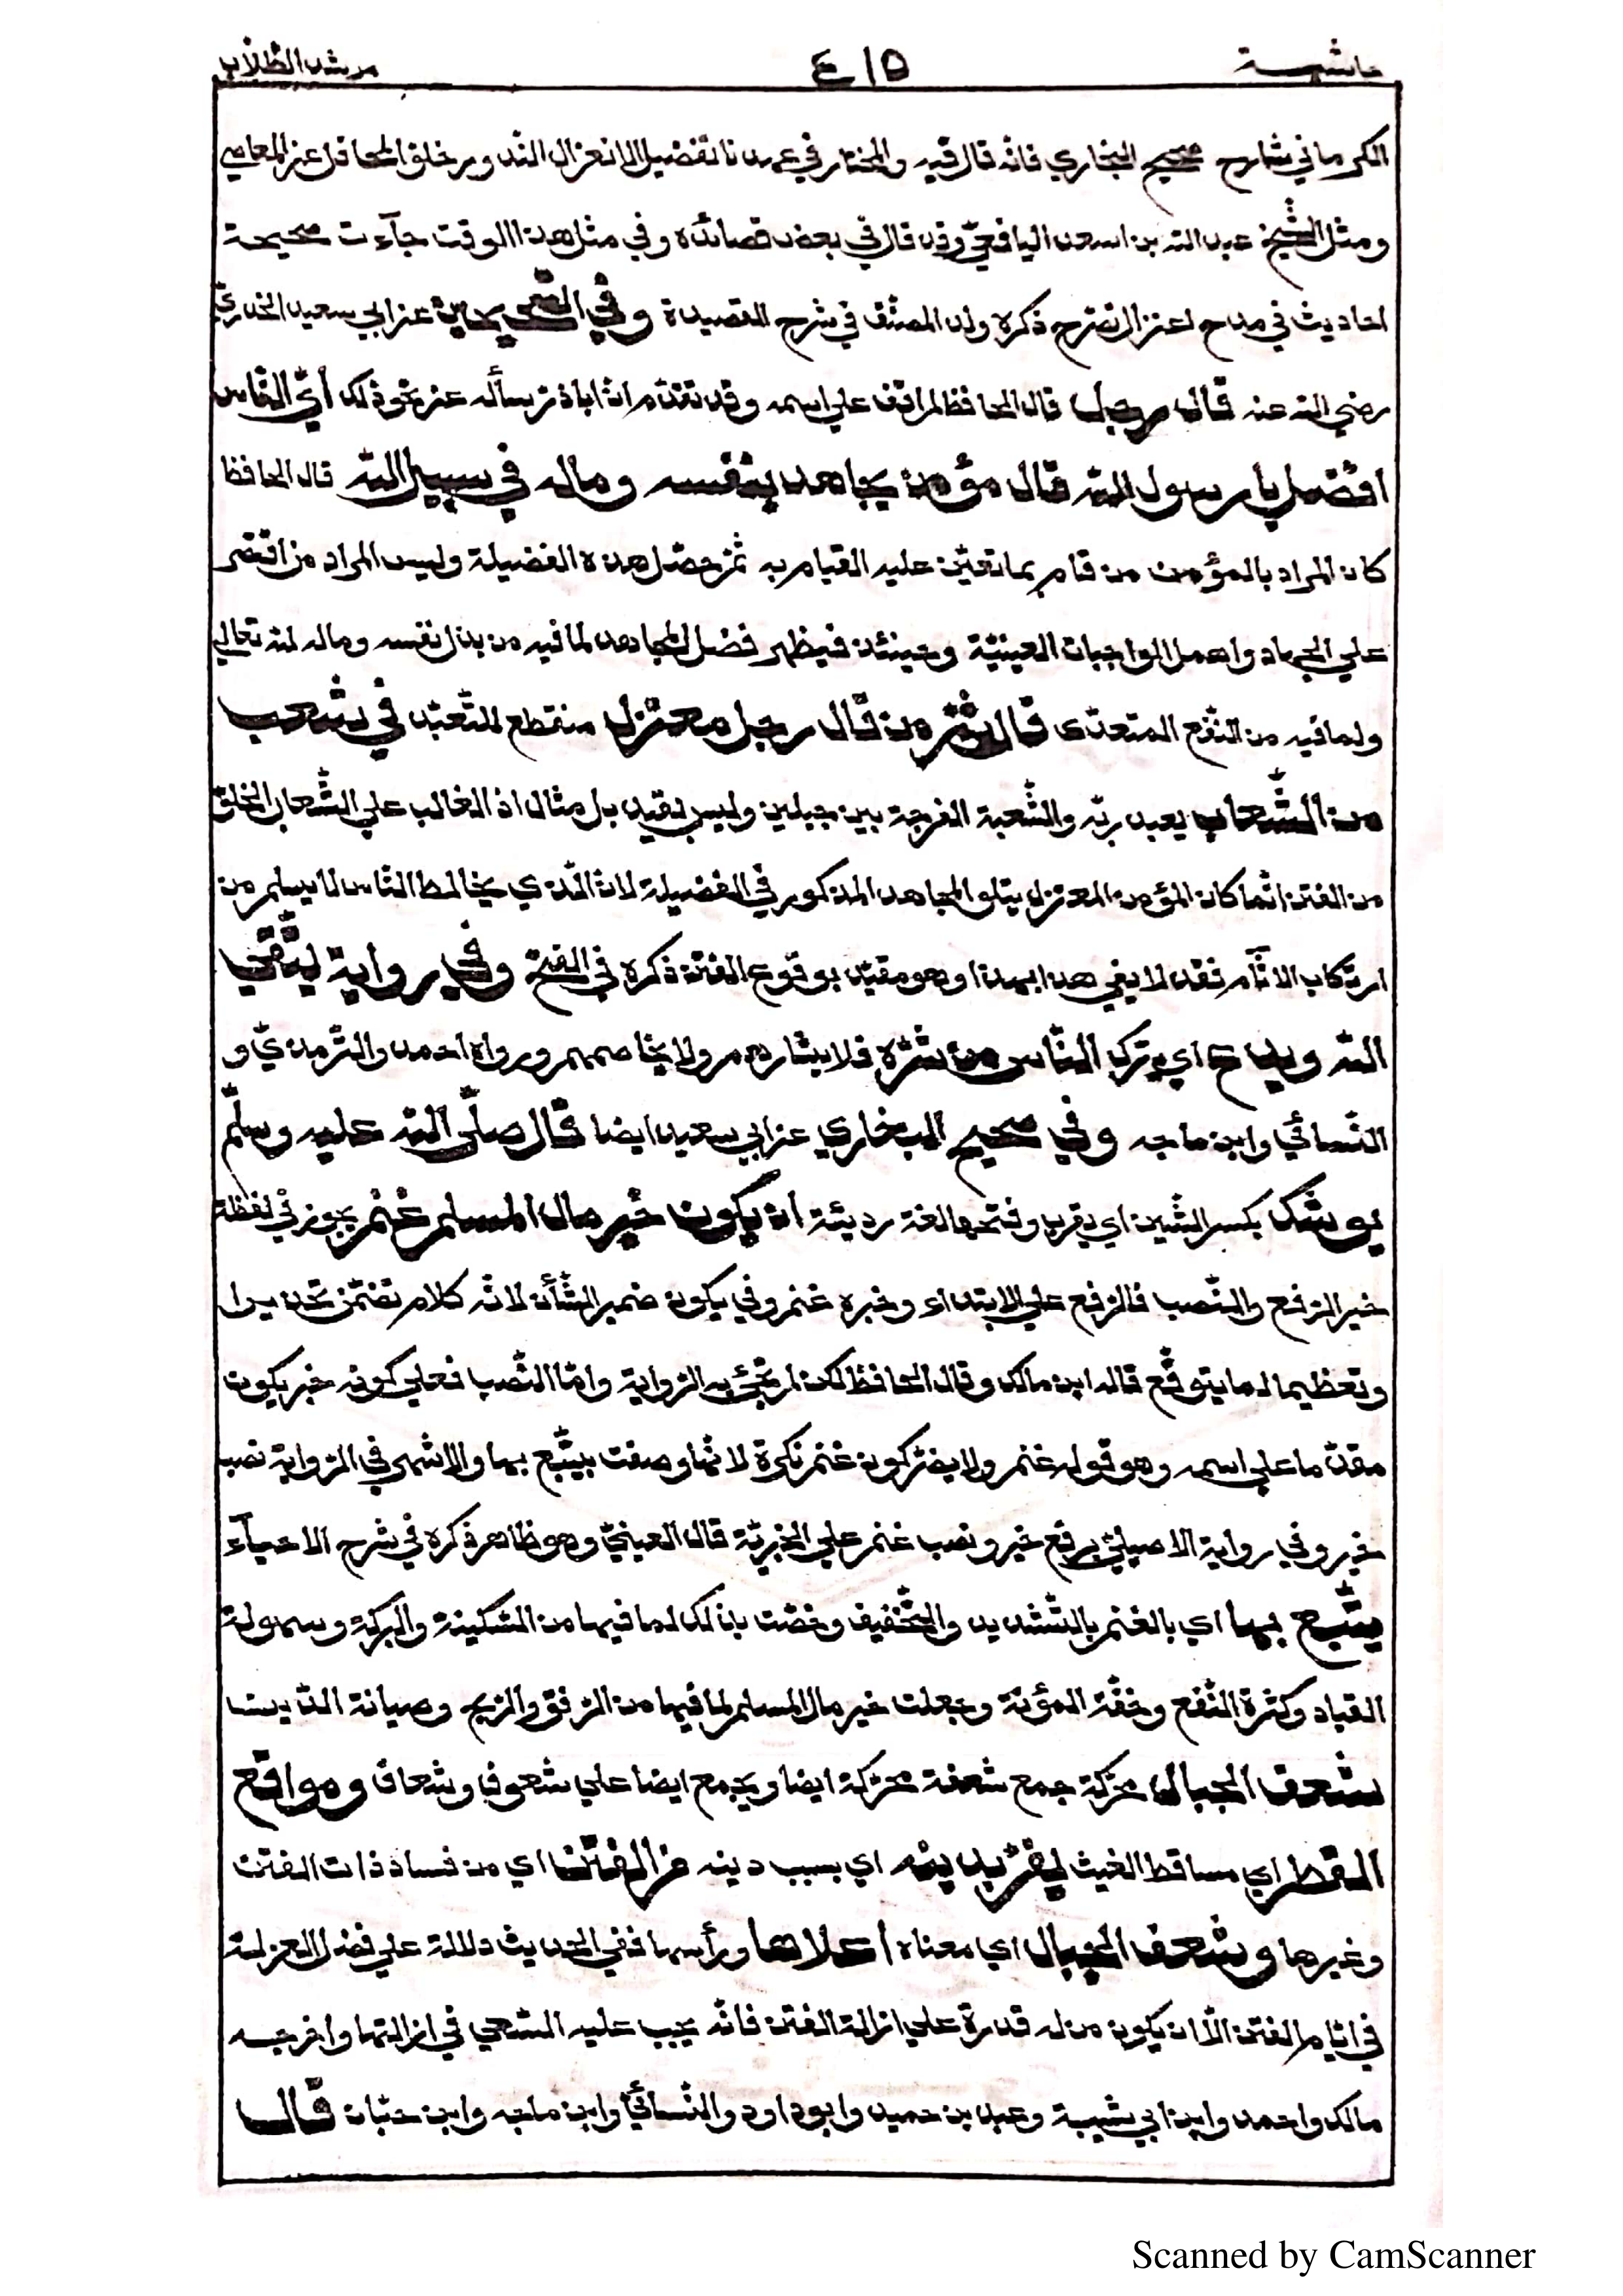 حاشية ٤١٥ مرشد الطلاب
الكرماني شارح صحيح البخاري فانه قال فيه والمختار في عصرنا تفضيل الانعزال لندور خلو المحافل عن المعاصي
ومثل الشيخ عبد الله بن اسعد اليافعيّ وقد قال في بعض قصائده وفي مثل هذا الوقت جآءت صحيحة
احاديث في مدح اعتزال نصرح ذكره ولد المصنّف في شرح القصيدة وفي الصّحيحين عن ابي سعيد الخدريّ
رضي الله عنه قال رجل قال الحافظ لم اقف علي اسمه وقد تقدّم انّ اباذر سأله عن نحو ذلك أيّ النّاس
افضل يا رسول الله قال مؤمن يجاهد بنفسه وماله في سبيل الله قال الحافظ
كان المراد بالمؤمن من قام بما تعيّن عليه القيام به ثمّ حصّل هذه الفضيلة وليس المراد من اقتصر
علي الجهاد واهمل الواجبات العينيّة وحينئذ فيظهر فضل المجاهد لما فيه من بذل نفسه وماله لله تعالي
ولما فيه من النّفع المتعدّى قال ثمّ من قال رجل معتزل منقطع للتّعبّد في شعب
من الشّعاب يعبد ربّه والشّعبة الفرجة بين جبلين وليس بقيد بل مثال اذ الغالب علي الشّعاب الخلوّ
من الفتن انّما كان المؤمن المعتزل يتلو المجاهد المذكور في الفضيلة لانّ الّذي يخالط النّاس لا يسلم من
ارتكاب الآثام فقد لا يفي هذا بهذا وهو مقيّد بوقوع الفتنة ذكره في الفتح وفي رواية يتّقي
الله ويدع اي يترك النّاس من شرّه فلا يشارهم ولا يخاصمهم ورواه احمد والتّرمذيّ و
النّسائي وابن ماجه وفي صحيح البخاري عن ابي سعيد ايضا قال صلّى الله عليه وسلّم
يوشك بكسر الشّين اي يقرب وفتحها لغة رديئة ان يكون خير مال المسلم غنم يجوز في لفظة
خير الرّفع والنّصب فالرّفع علي الابتداء وخبره غنم وفي يكون ضمير الشّأن لانّه كلام تضمّن تحذيرا
وتعظيما لما يتوقّع قاله ابن مالك وقال الحافظ لكن لم تجئ به الرّواية وامّا النّصب فعلي كونه خبر يكون
مقدّما علي اسمه وهو قوله غنم ولا يضرّ كون غنم نكرة لانّها وصفت بيتّبع بها والاشهر في الرّواية نصب
خير وفي رواية الاصيليّ برفع خير ونصب غنم علي الخبريّة قال العينيّ وهو ظاهر ذكره في شرح الاحيآء
يتّبع بها اي بالغنم بالتّشديد والتّخفيف وخصّت بذلك لما فيها من السّكينة والبركة وسهولة
القياد وكثرة النّفع وخفّة المؤنة وجعلت خير مال المسلم لما فيها من الرّفق والرّبح وصيانة الدّين
شعف الجبال محرّكة جمع شعفة محرّكة ايضا ويجمع ايضا علي شعوف وشعاف ومواقع
القطر اي مساقط الغيث يفرّ بدينه اي بسبب دينه من الفتن اي من فساد ذات الفتن
وغيرها وشعف الجبال اي معناه اعلاها ورأسها ففي الحديث دلالة علي فضل العزلة
في ايّام الفتن الّا ان يكون من له قدرة علي ازالة الفتن فانّه يجب عليه السّعي في ازالتها واخرجه
مالك واحمد وابن ابي شيبة وعبد بن حميد وابو داود والنّسائيّ وابن ماجه وابن حبّان قال
Scanned by CamScanner